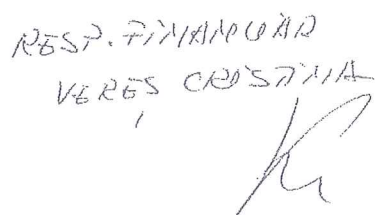 RESP. FINANCIAR
VERES CRISTINA